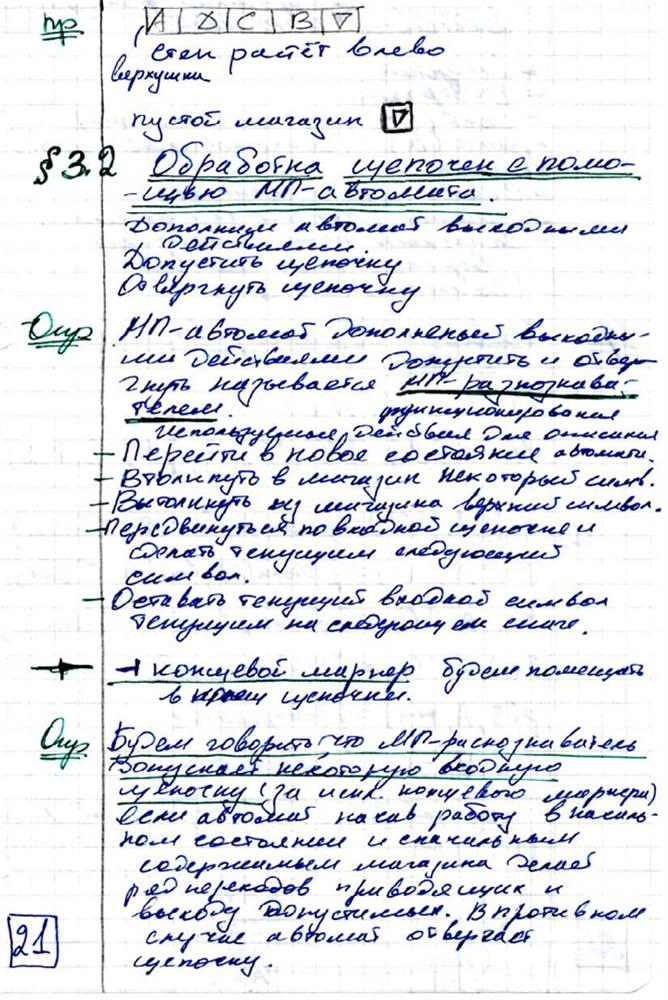 пр | A | D | C | B | ▽ |
стек растёт влево
верхушка
пустой магазин ▽
§ 3.2 Обработка цепочек с помо-
-щью МП-автомата.
Дополним автомат выходными
действиями
Допустить цепочку
Отвергнуть цепочку
Опр МП-автомат дополненный выходны-
ми действиями допустить и отвер-
гнуть называется МП-распознава-
телем.
функционирования
Используемые действия для описания
– Перейти в новое состояние автомата.
– Втолкнуть в магазин некоторый симв.
– Вытолкнуть из магазина верхний символ.
– Передвинуться по входной цепочке и
сделать текущим следующий
символ.
– Оставить текущий входной символ
текущим на следующем шаге.
⊣ концевой маркер будем помещать
в конец цепочки.
Опр Будем говорить, что МП-распознаватель
допускает некоторую входную
цепочку (за искл. концевого маркера)
если автомат начав работу в началь-
ном состоянии и с начальным
содержимым магазина делает
ряд переходов приводящих к
выходу допустимых. В противном
случае автомат отвергает
цепочку.
21